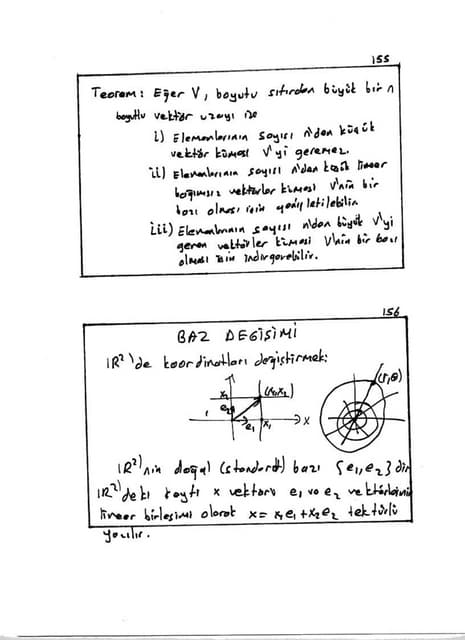 155
Teorem: Eğer V, boyutu sıfırdan büyük bir n
boyutlu vektör uzayı ise
i) Elemanlarının sayısı n'den küçük
vektör kümesi V'yi geremez.
ii) Elemanlarının sayısı n'den küçük lineer
bağımsız vektörler kümesi V'nin bir
bazı olması için genişletilebilir
iii) Elemanlarının sayısı n'den büyük V'yi
geren vektörler kümesi V'nin bir bazı
olması için indirgenebilir.
156
BAZ DEĞİŞİMİ
IR²'de koordinatları değiştirmek:
x₂ (x₁,x₂) (r,θ)
e₂ e₁ x₁ x
IR²'nin doğal (standard) bazı {e₁,e₂} dir
IR²'deki x vektörü e₁ ve e₂ vektörlerinin
lineer birleşimi olarak x = x₁e₁ + x₂e₂ tek türlü
yazılır.